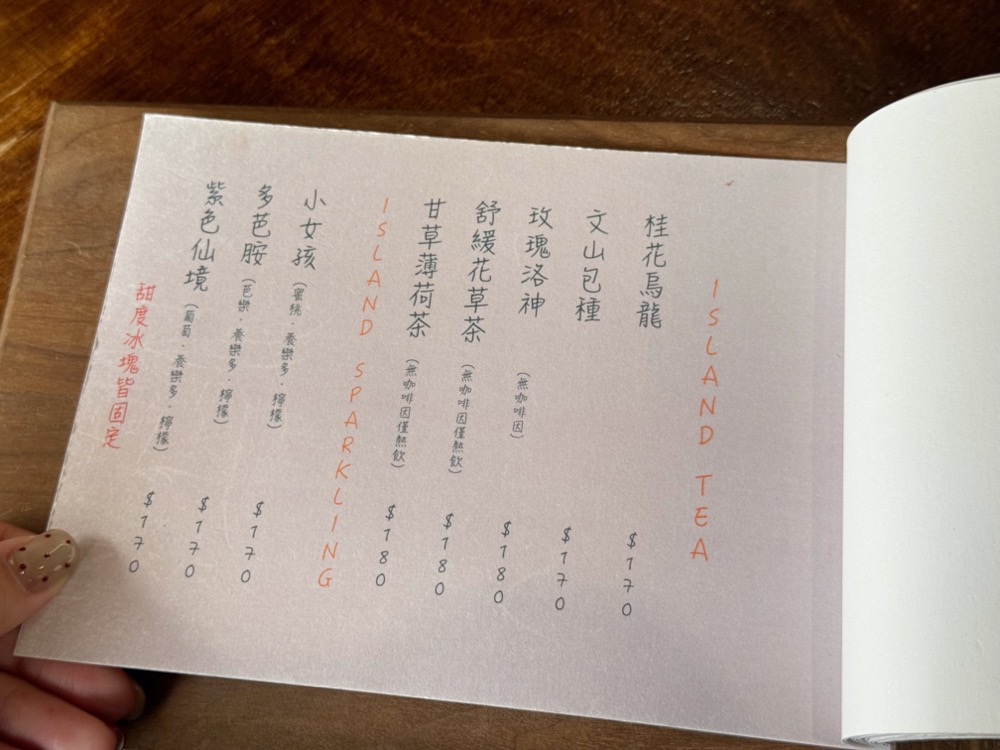 ISLAND TEA
桂花烏龍 $170
文山包種 $170
玫瑰洛神 (無咖啡因) $180
舒緩花草茶 (無咖啡因僅熱飲) $180
甘草薄荷茶 (無咖啡因僅熱飲) $180
ISLAND SPARKLING
小女孩 (蜜桃．養樂多．檸檬) $170
多芭胺 (芭樂．養樂多．檸檬) $170
紫色仙境 (葡萄．養樂多．檸檬) $170
甜度冰塊皆固定